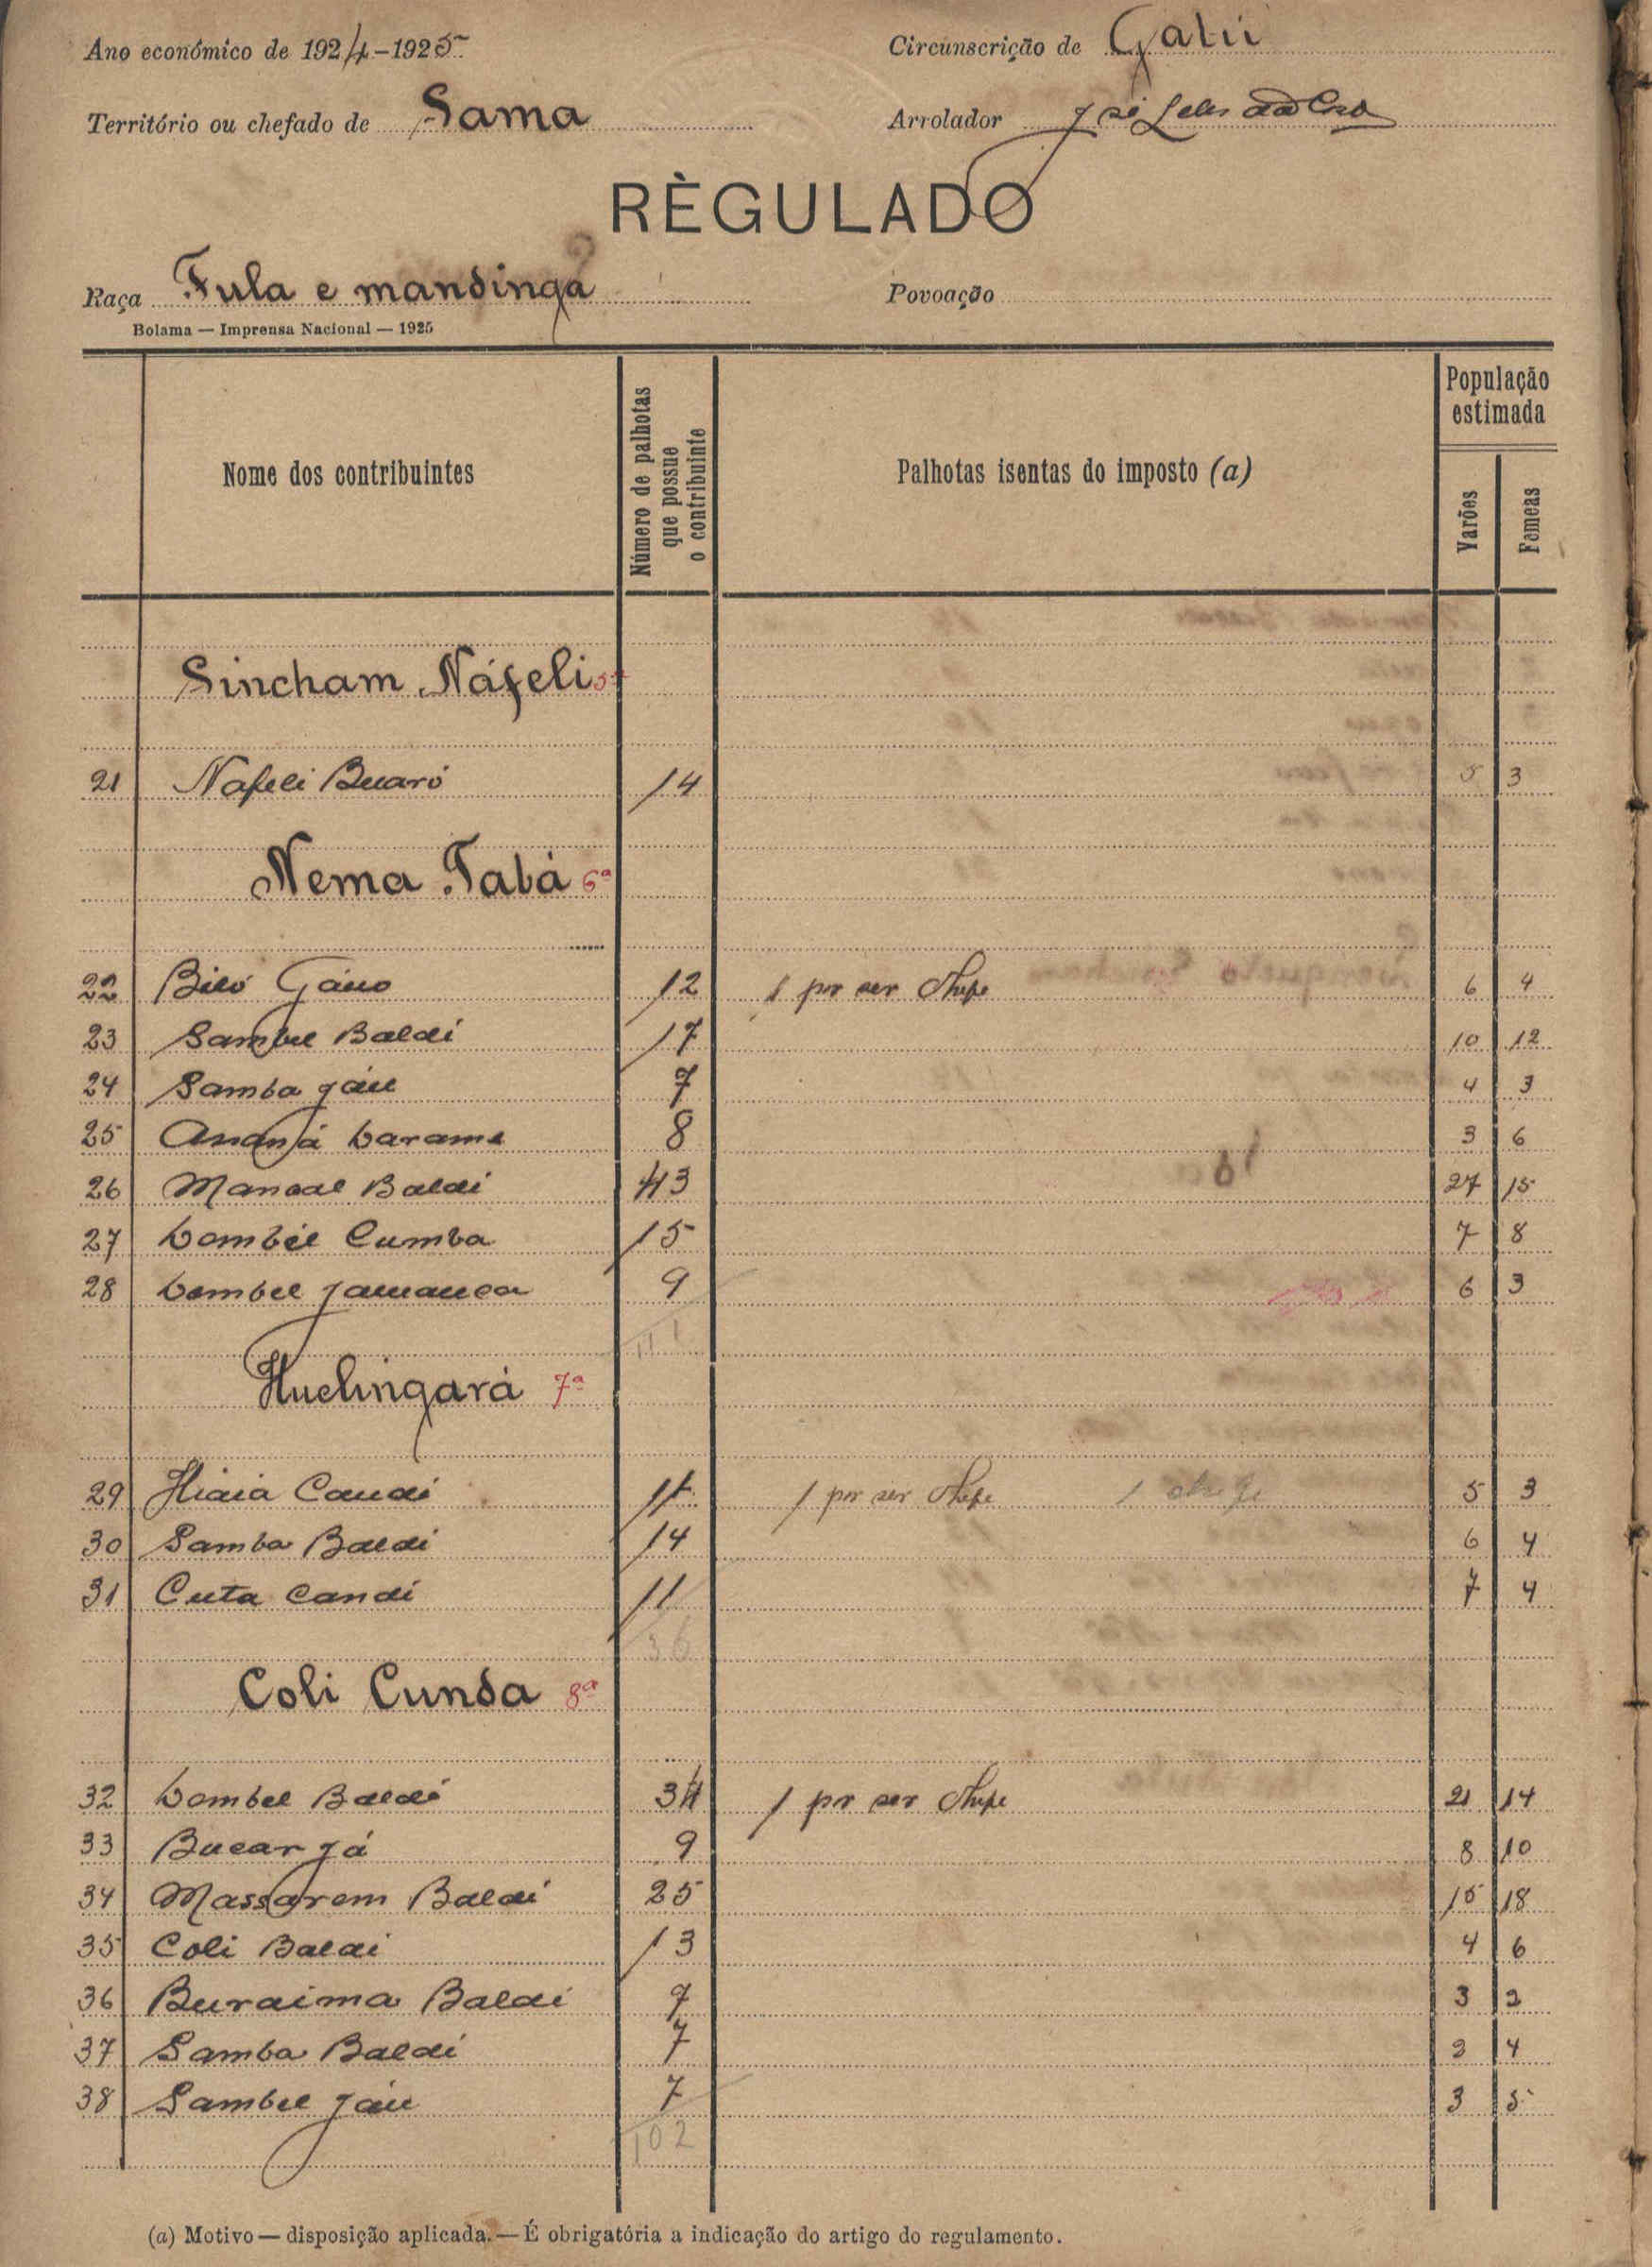 Ano económico de 1924-1925
Circunscrição de Gabú
Território ou chefado de Sama
Arrolador José
RÈGULADO
Raça Fula e mandinga
Povoação
Bolama — Imprensa Nacional — 1925
Nome dos contribuintes
Número de palhotas que possue o contribuinte
Palhotas isentas do imposto (a)
População estimada
Varões
Femeas
Sincham Náfeli 5ª
21 Nafeli Buaró 14 5 3
Nema Tabá 6ª
22 Biló Gáno 12 1 por ser Chefe 6 4
23 Sambel Baldé 17 10 12
24 Samba Jáu 7 4 3
25 8 3 6
26 Baldé 43 27 15
27 Dembél Cumba 15 7 8
28 Dembel Jamanca 9 6 3
111
Huelingará 7ª
29 Hiaia Candé 11 1 por ser Chefe 1 chefe 5 3
30 Samba Baldé 14 6 4
31 Cuta Candé 11 7 4
36
Coli Cunda 8ª
32 Dembel Baldé 34 1 por ser Chefe 21 14
33 Bucar Já 9 8 10
34 Baldé 25 15 18
35 Coli Baldé 13 4 6
36 Buraima Baldé 7 3 2
37 Samba Baldé 7 2 4
38 Sambel Jáu 7 3 5
102
(a) Motivo — disposição aplicada. — É obrigatória a indicação do artigo do regulamento.